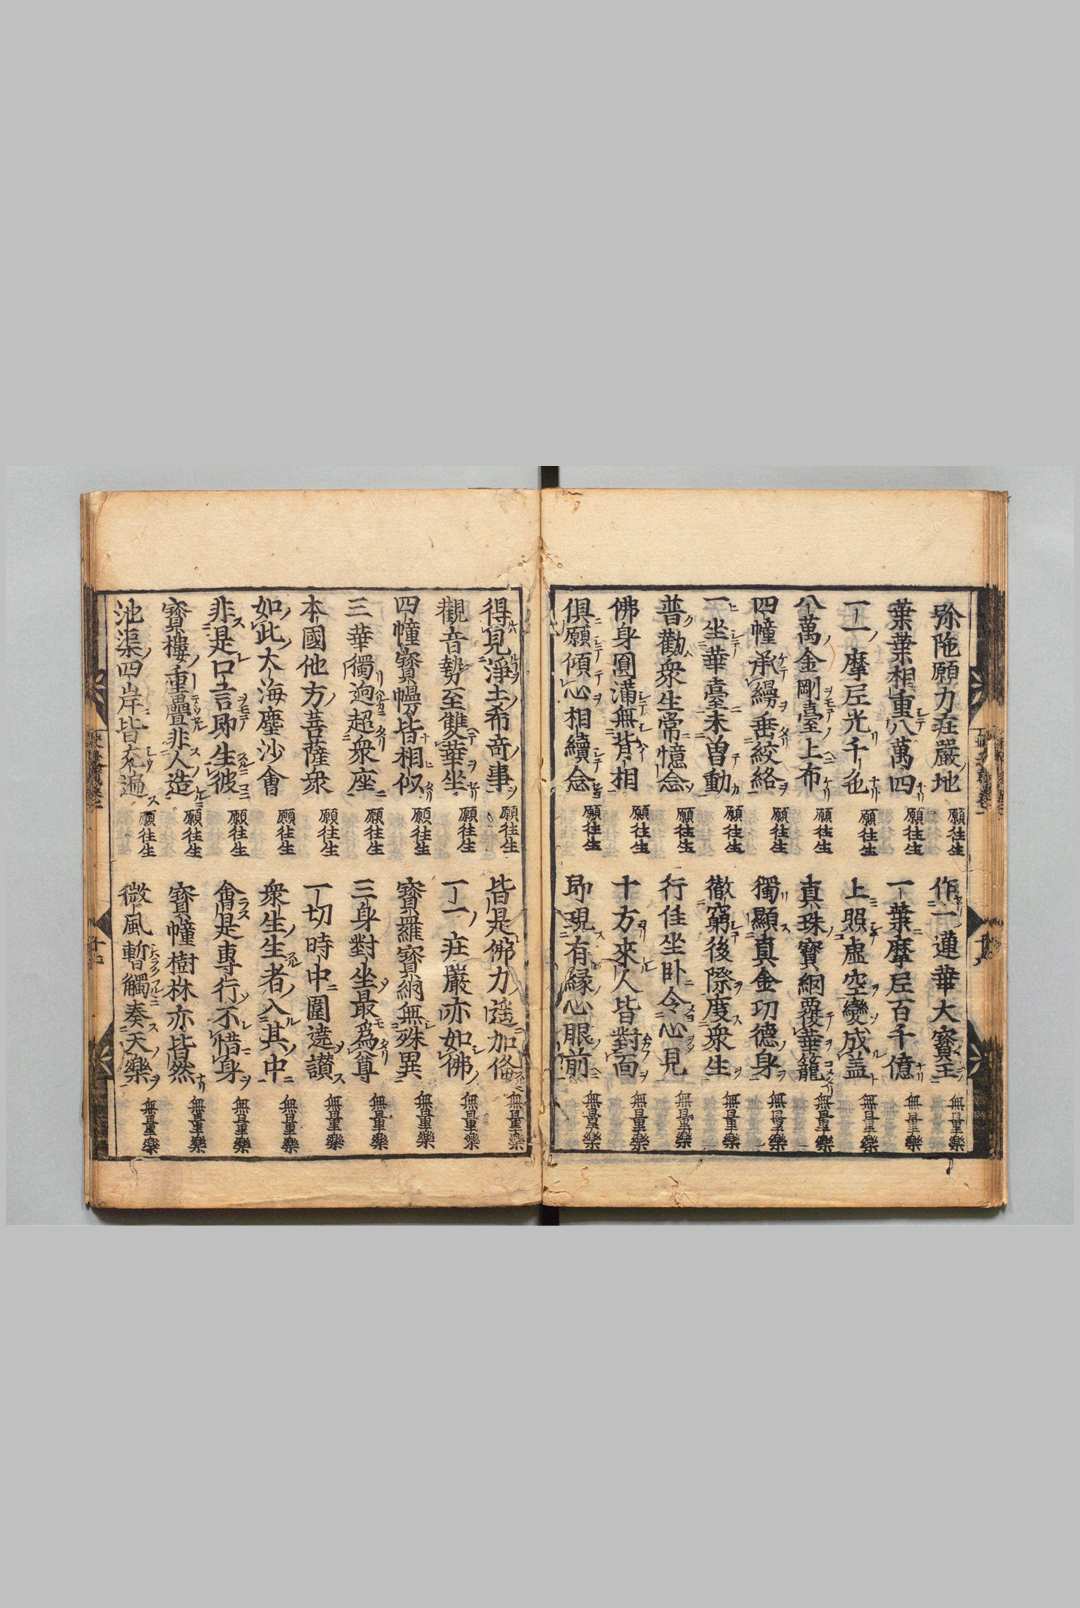 弥陁願力莊嚴地 願往生 作一蓮華大寳王 無量樂
葉葉相重八萬四 願往生 一葉摩尼百千億 無量樂
一一摩尼光千色 願往生 上照虛空變成蓋 無量樂
八萬金剛臺上布 願往生 真珠寳網覆華籠 無量樂
四幢承縵垂絞絡 願往生 獨顯真金功德身 無量樂
一坐華臺未曽動 願往生 徹窮後際度衆生 無量樂
普勸衆生常憶念 願往生 行住坐卧令心見 無量樂
佛身圓滿無背相 願往生 十方來人皆對面 無量樂
俱願傾心相續念 願往生 即現有縁心眼前 無量樂
得見淨土希竒事 願往生 皆是佛力遥加俻 無量樂
觀音勢至雙華坐 願往生 一一莊嚴亦如佛 無量樂
四幢寳幔皆相似 願往生 寳羅寳網無殊異 無量樂
三華獨迥超衆座 願往生 三身對坐最爲尊 無量樂
本國他方菩薩衆 願往生 一切時中圍遶讃 無量樂
如此大海塵沙會 願往生 衆生生者入其中 無量樂
非是口言即生彼 願往生 會是專行不惜身 無量樂
寳樓重疊非人造 願往生 寳幢樹林亦皆然 無量樂
池渠四岸皆充遍 願往生 微風暫觸奏天樂 無量樂